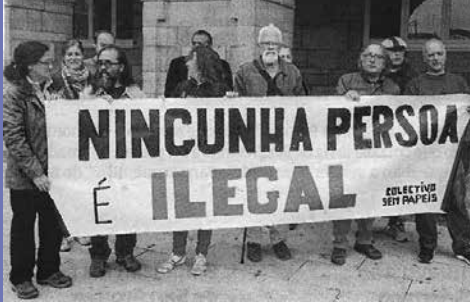 NINGUNHA PERSOA
É ILEGAL
COLECTIVO
SEN PAPEIS